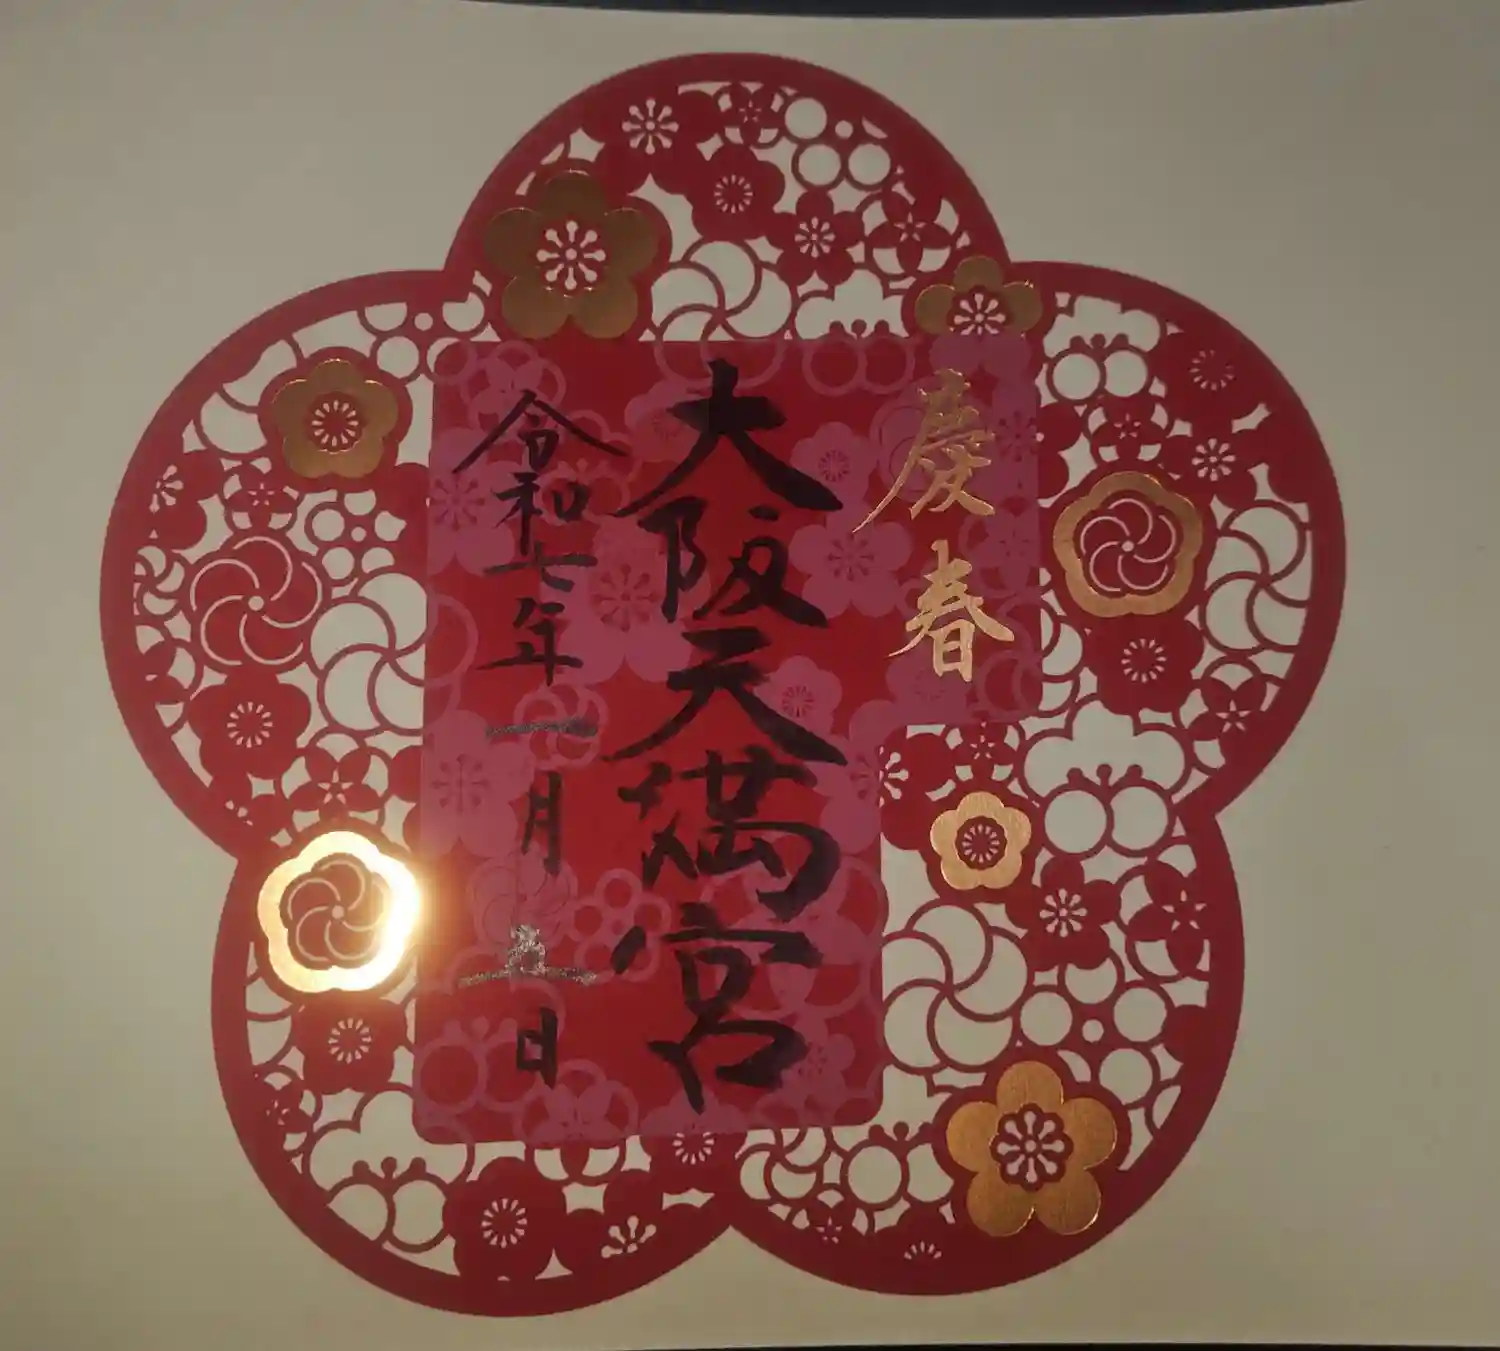 慶春
大阪天満宮
令和七年一月吉日